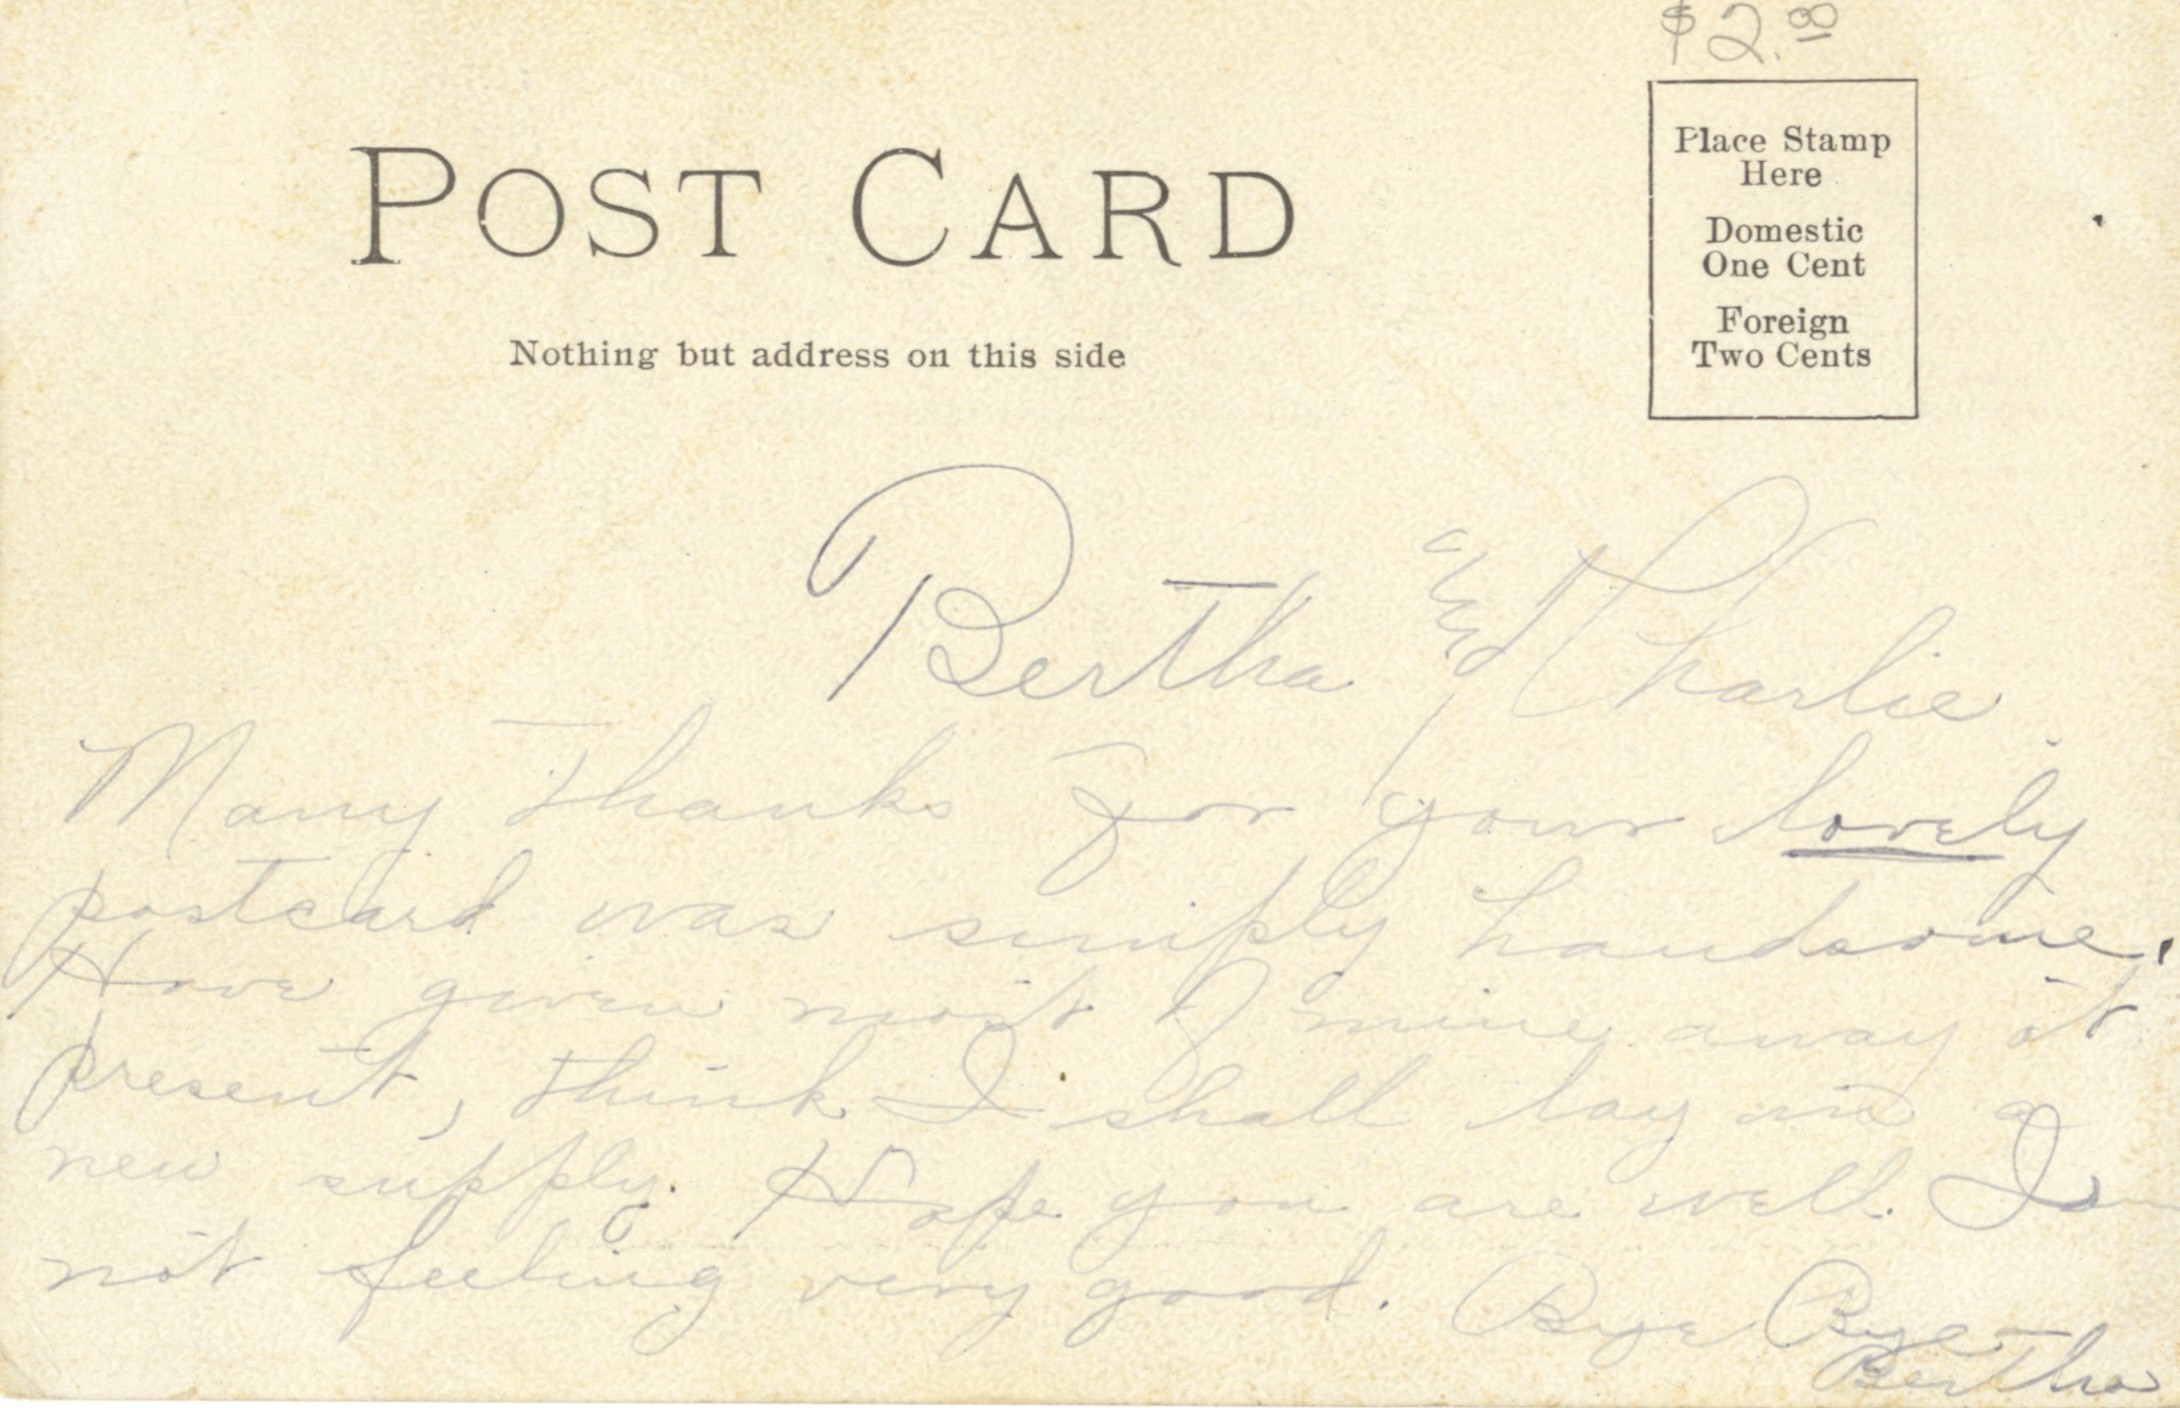 $2.00
POST CARD
Place Stamp
Here
Domestic
One Cent
Foreign
Two Cents
Nothing but address on this side
Bertha and Charlie
Many thanks for your lovely
postcard was simply handsome.
Have given most of mine away at
present, think I shall lay in a
new supply. Hope you are well. I
not feeling very good. Bye Bye
Bertha